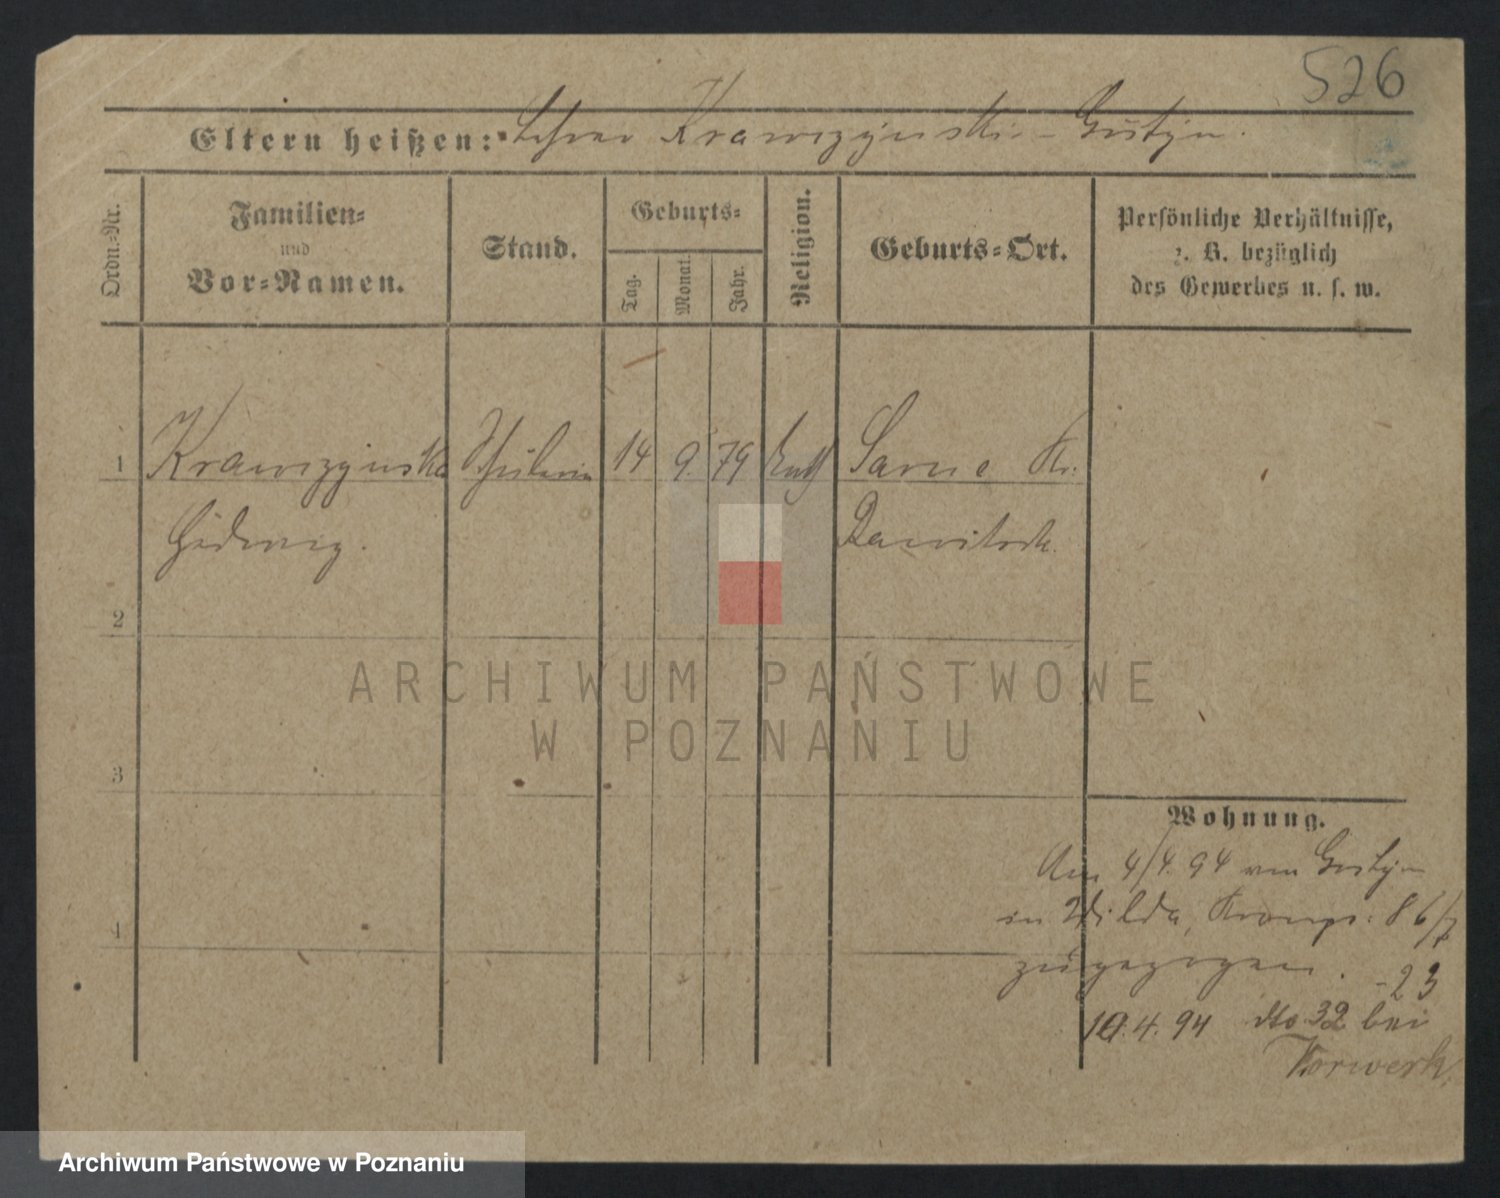 526
Eltern heißen: Lehrer Krawczynski - Gostyn.
Ordn.-Nr.
Familien-
und
Vor-Namen.
Stand.
Geburts-
Tag.
Monat.
Jahr.
Religion.
Geburts-Ort.
Persönliche Verhältnisse,
z. B. bezüglich
des Gewerbes u. s. w.
1 Krawczynska Schülerin 14 9. 79 kath Sarne Kr.
Hedwig. Rawitsch.
2
ARCHIWUM PAŃSTWOWE
W POZNANIU
3
4
Wohnung.
Am 4/4. 94 von Gostyn
in Wilda, Kronpr: 8 6/7
zugezogen. - 23
10.4.94 dto. 32 bei
Vorwerk
Archiwum Państwowe w Poznaniu